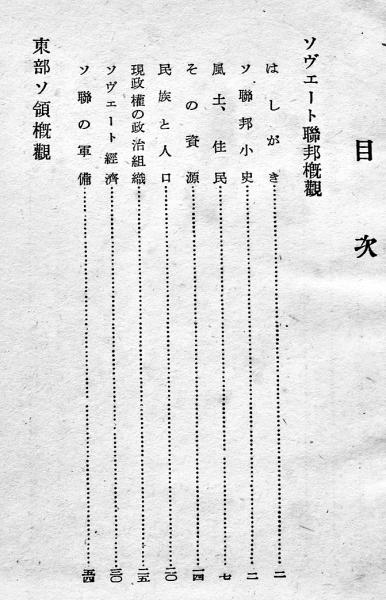 目次
ソヴェート聯邦槪觀
はしがき……二
ソ聯邦小史……二
風土、住民……七
その資源……一四
民族と人口……二〇
現政權の政治組織……二五
ソヴェート經濟……三〇
ソ聯の軍備……五四
東部ソ領槪觀